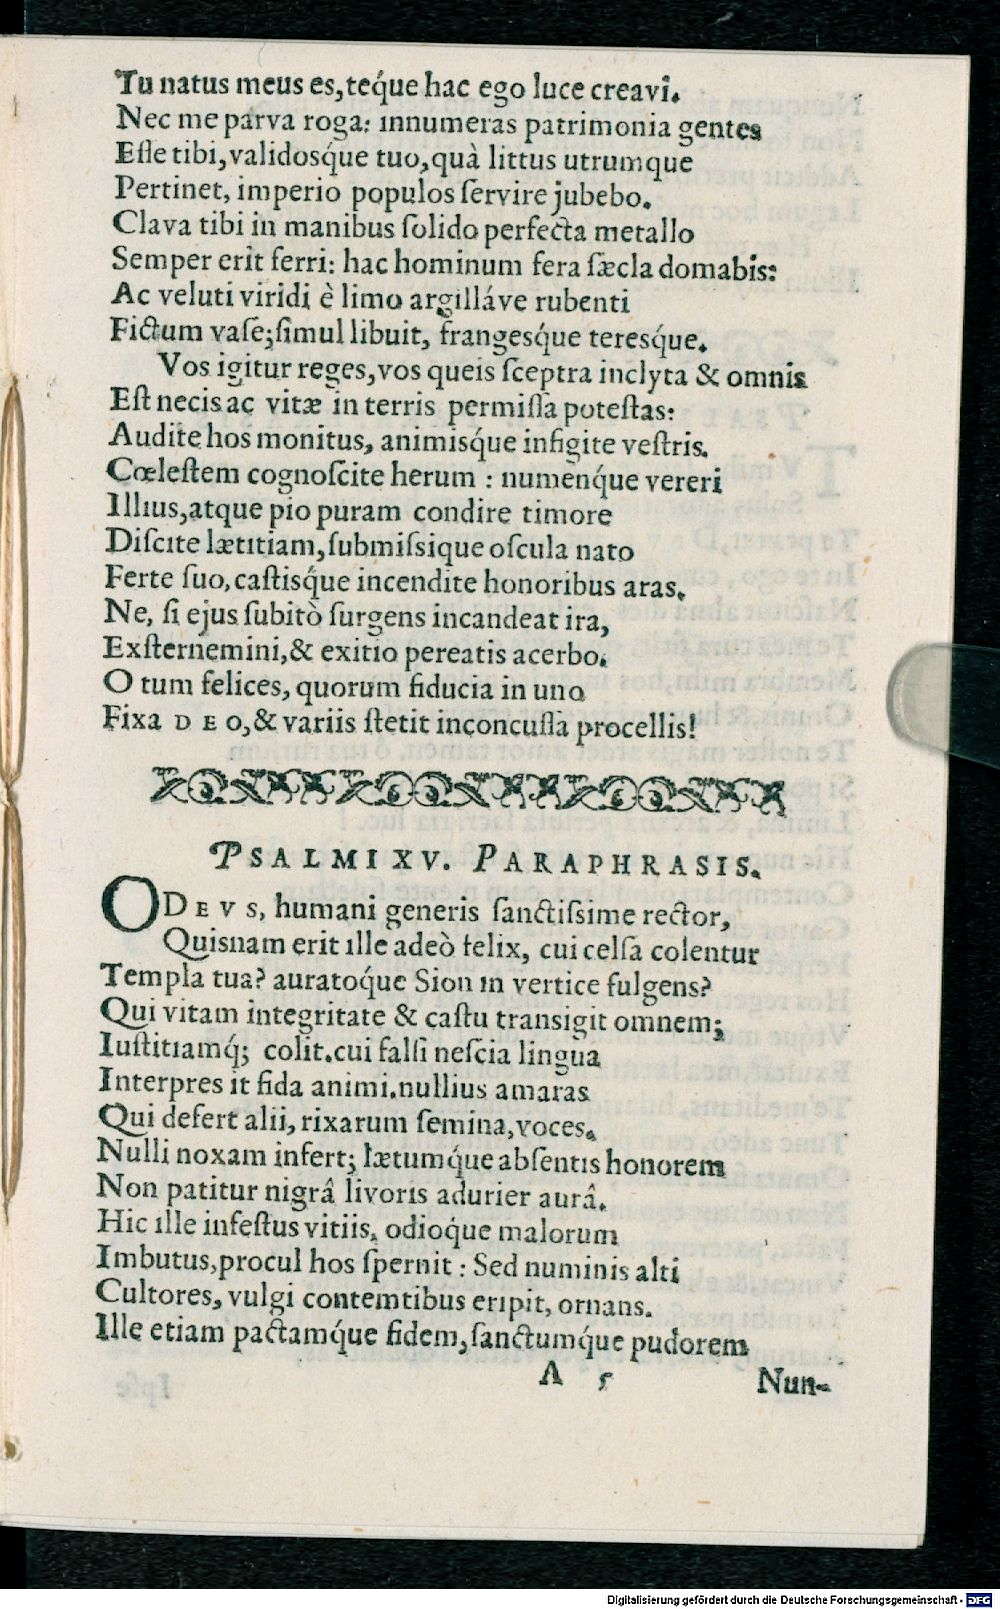 Tu natus meus es, teq́ue hac ego luce creavi.
Nec me parva roga: innumeras patrimonia gentes
Eſſe tibi, validosq́ue tuo, quà littus utrumque
Pertinet, imperio populos ſervire jubebo.
Clava tibi in manibus ſolido perfecta metallo
Semper erit ferri: hac hominum fera ſæcla domabis:
Ac veluti viridi è limo argilláve rubenti
Fictum vaſe; ſimul libuit, frangesq́ue teresq́ue.
Vos igitur reges, vos queis ſceptra inclyta & omnis
Eſt necis ac vitæ in terris permiſſa poteſtas:
Audite hos monitus, animisq́ue infigite veſtris.
Cœleſtem cognoſcite herum : numenq́ue vereri
Illius, atque pio puram condire timore
Diſcite lætitiam, ſubmiſsique oſcula nato
Ferte ſuo, caſtisq́ue incendite honoribus aras.
Ne, ſi ejus ſubitò ſurgens incandeat ira,
Exſternemini, & exitio pereatis acerbo.
O tum felices, quorum fiducia in uno
Fixa DEO, & variis ſtetit inconcuſſa procellis!
PSALMI XV. PARAPHRASIS.
O DEVS, humani generis ſanctiſsime rector,
Quisnam erit ille adeò felix, cui celſa colentur
Templa tua? auratoq́ue Sion in vertice fulgens?
Qui vitam integritate & caſtu transigit omnem;
Iuſtitiamq́; colit. cui falſi neſcia lingua
Interpres it fida animi. nullius amaras
Qui defert alii, rixarum ſemina, voces.
Nulli noxam infert; lætumq́ue abſentis honorem
Non patitur nigrâ livoris adurier aurâ.
Hic ille infeſtus vitiis, odioq́ue malorum
Imbutus, procul hos ſpernit : Sed numinis alti
Cultores, vulgi contemtibus eripit, ornans.
Ille etiam pactamq́ue fidem, ſanctumq́ue pudorem
A 5 Nun-
Digitalisierung gefördert durch die Deutsche Forschungsgemeinschaft - DFG